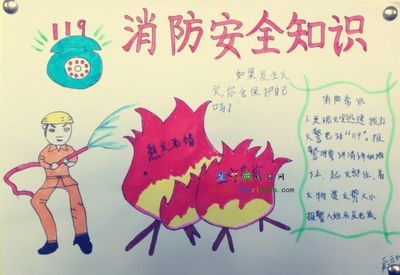 119
消防安全知识
如果发生火
灾,你会保护自己
吗?
烈火无情
消防常识
1.发现火灾迅速拨打
火警电话"119"。报
警时要讲清详细地
址、起火部位、着
火物质、火势大小、
报警人姓名及电话